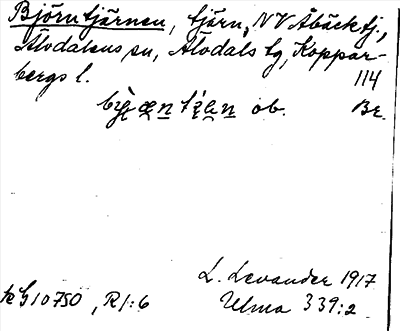 Björntjärnen, tjärn, NV Åbäcktj.,
Älvdalens sn, Älvdals tg, Koppar-
bergs l. 114
ob. Br.
L. Levander 1917
10750, R1:6 Ulma 339:2